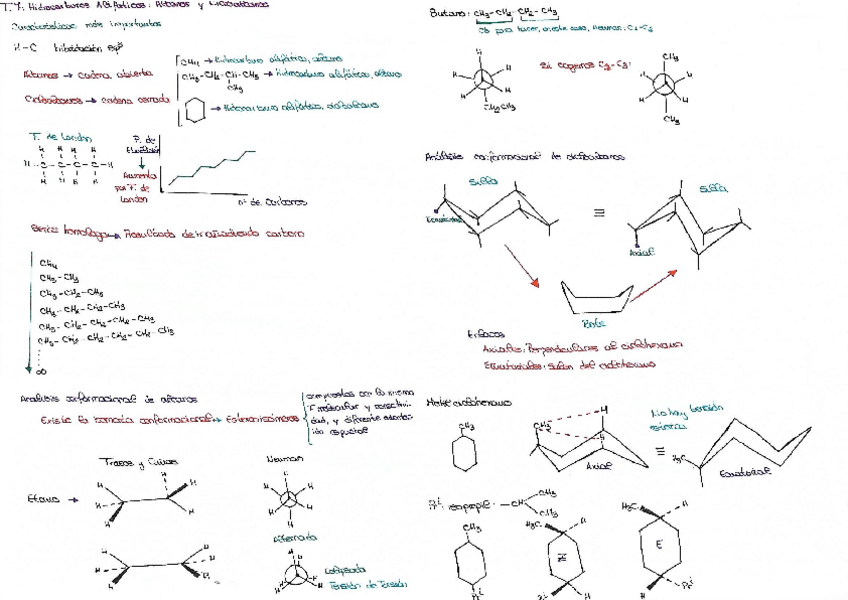 T.7. Hidrocarburos Alifáticos: Alcanos y Cicloalcanos
Características más importantes
H-C hibridación sp³
Alcanos → cadena abierta
Cicloalcanos → cadena cerrada
CH₄ → Hidrocarburo alifático, alcano
CH₃-CH₂-CH-CH₃ → Hidrocarburo alifático, alcano
CH₃
→ Hidrocarburo alifático, cicloalcano
F. de London
H H H H
H-C-C-C-C-H
H H H H
P. de
Ebullición
Aumenta
por F. de
London
nº de carbonos
Serie homóloga → Resultado de ir añadiendo carbono
CH₄
CH₃-CH₃
CH₃-CH₂-CH₃
CH₃-CH₂-CH₂-CH₃
CH₃-CH₂-CH₂-CH₂-CH₃
CH₃-CH₂-CH₂-CH₂-CH₂-CH₃
∞
Análisis conformacional de alcanos
Existe la isomería conformacional → Estereoisómeros
compuestos con la misma
F. molecular y conectivi-
dad, y diferente
espacial
Trazos y Cuñas
Newman
Etano →
Alternada
Eclipsada
Tensión de Torsión
Butano: CH₃-CH₂-CH₂-CH₃
Newman: C₂-C₃
CH₂CH₃
Si cogemos C₂-C₃:
CH₃
CH₃
Análisis conformacional de cicloalcanos
Silla
Ecuatorial
≡
Silla
Axial
Bote
Enlaces
Axiales: Perpendiculares al ciclohexano
Ecuatoriales: Salen del ciclohexano
Metilciclohexano
CH₃
CH₃
H
H
Axial
No hay tensión
estérica
≡
H₃C
Ecuatorial
Prⁱ: isopropilo -CH
CH₃
CH₃
CH₃
Prⁱ
H₃C
H
Z
Prⁱ
H
H₃C
H
E
H
Prⁱ